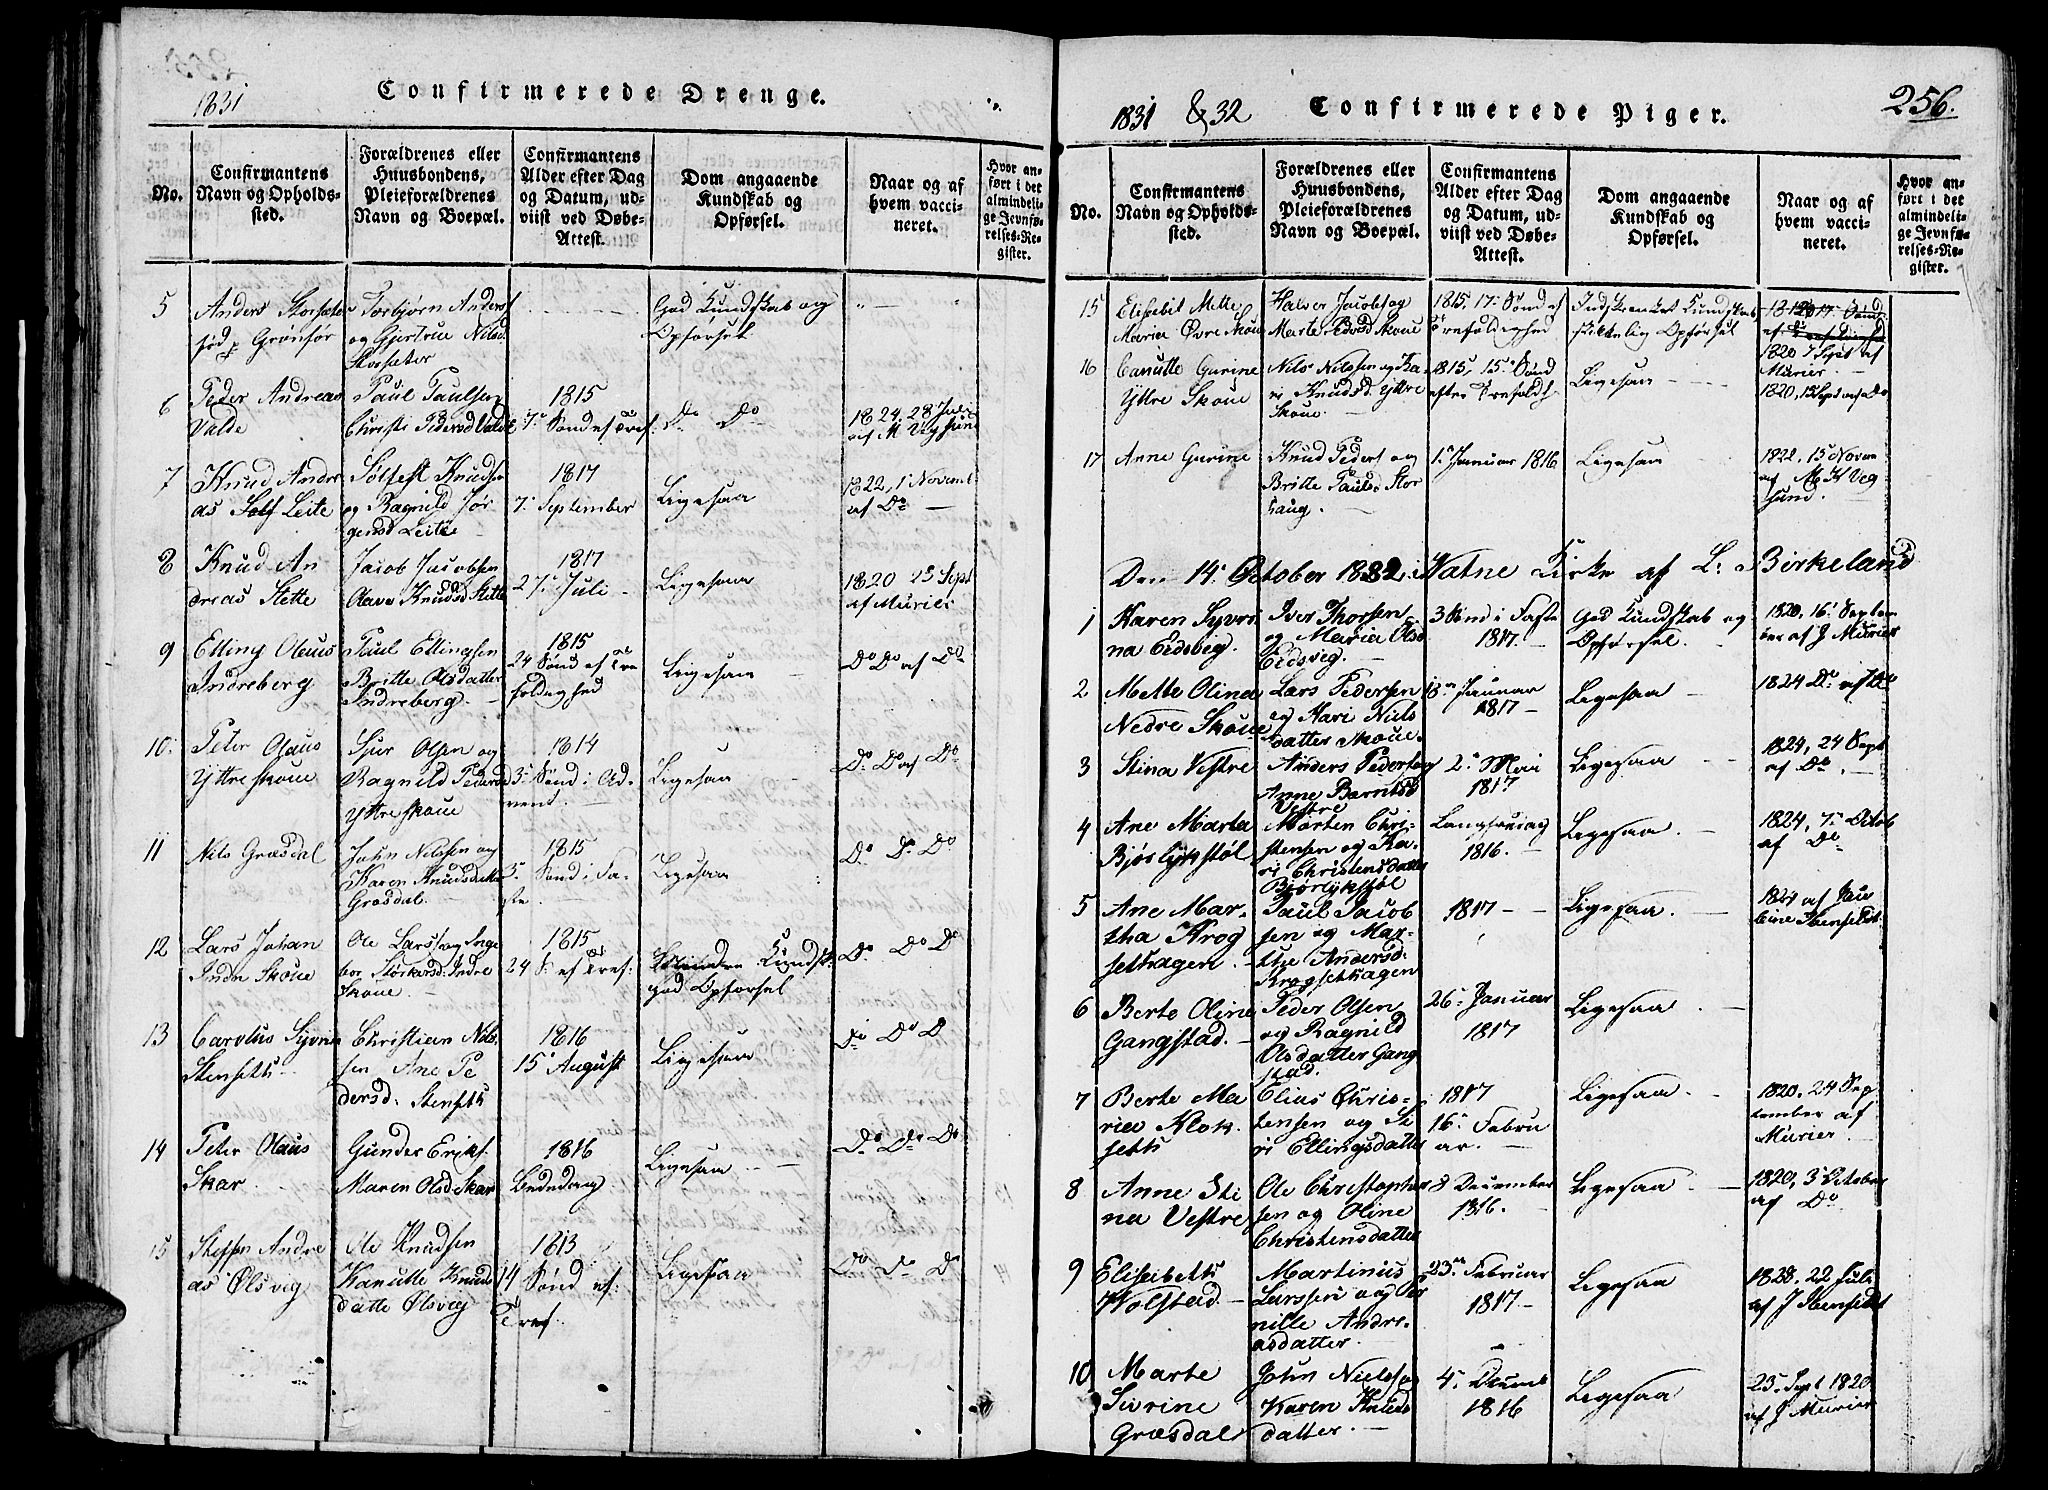 1831
Confirmerede Drenge.
No.
Confirmantens
Navn og Opholds-
sted.
Forældrenes eller
Huusbondens,
Pleieforældrenes
Navn og Boepæl.
Confirmantens
Alder efter Dag
og Datum, ud-
viist ved Døbe-
Attest.
Dom angaaende
Kundskab og
Opførsel.
Naar og af
hvem vacci-
neret.
Hvor an-
ført i det
almindeli-
ge Jevnfø-
relses-Re-
gister.
5
Anders Storsæter
fød p Grønfør
Torbjørn Anders
og Gjertrue Nilsd
Storsæter
God Kundskab og
Opførsel
6
Peder Andreas
Valde
Paul Paulsen
Christi Pedersd Valde
1815
7de Sønd ef Tref:
Do Do
1824, 28 Juli
af M Vegsund
7
Knud Andre
as Leite
Knudsen
og Ragnild Jør
gensd Leite
1817
7. September
Ligesaa
1822, 1 Novemb
af Do
8
Knud An
dreas Slette
Jacob Jacobsen
Olave Knudsd Slette
1817
27. Juli
Ligesaa
1820 25 Sept
af Murier
9
Elling Olaus
Indreberg
Paul Ellingsen
Britte Olsdatter
Indreberg.
1815
24 Sønd ef Tre
foldighed
Ligesaa
Do Do af Do
10.
Peter Olaus
Yttre Skoue
Siver Olsen og
Ragnild Pedersd
Yttre Skoue
1814
3. Sønd i Ad-
vent.
Ligesaa
Do Do af Do
11
Nils Græsdal
John Nilssen og
Karen Knudsdatter
Græsdal.
1815
5. Sønd i Fa-
ste
Ligesaa
Do Do Do
12
Lars Johan
Indre Skoue
Ole Larss og Inge
bor Størkersd: Indre
Skoue.
1815
24 S: ef Tref:
Mindre Kundsk:
god Opførsel
Do Do Do
13
Carolus Syvrin
Stensetts
Christian Nils-
sen Ane Pe
dersd: Stensets
1816
15 August
Ligesaa
Do Do D
14
Peter Olaus
Skar
Gunder Eriks.
Maren Olsd: Skar
1816
Bededag
Ligesaa
Do Do Do
15
Steffen Andre
as Ølsvig
Ole Knudsen
Kanutte Knuds
datte Ølsvig
1813
14 Sønd ef:
Tref.
Ligesaa
Do Do Do
1831 & 32
Confirmerede Piger.
256.
No.
Confirmantens
Navn og Opholds-
sted.
Forældrenes eller
Huusbondens,
Pleieforældrenes
Navn og Boepæl.
Confirmantens
Alder efter Dag
og Datum, ud-
viist ved Døbe-
Attest.
Dom angaaende
Kundskab og
Opførsel.
Naar og af
hvem vacci-
neret.
Hvor an-
ført i det
almindeli-
ge Jevnfø-
relses-Re-
gister.
15
Elisebet Mette
Maria Øvre Skou
Halver Jacobs og
Marte Pedersd Skoue
1815, 17. Sønd ef
Trefoldighed
Indskrænket Kundskab
skikkelig Opførsel
1820 7 Sept af
Murier.
16
Canutte Gurine
Yttre Skoue
Nils Nilssen og Ka
ri Knudsd. Yttre
Skoue.
1815, 15. Sønd
efter Trefoldh
Ligesaa
1820, 13 Sept af do
17
Anne Gurine
Knud Peders og
Britte Paulsd Stor
haug.
1. Januar 1816
Ligesaa
1822, 15 Novem
af M K Veg
sund.
Den 14. October 1832 i Vatne Kirke af L: Birkeland
1
Karen Syvri
na Eidsvig.
Iver Thorsen
og Maria Olsd
Eidsvig.
3 Sønd i Faste
1817.
God Kundskab og
Opførsel.
1820, 16. Septem
ber af J Murier
2
Mette Olina
Nedre Skoue
Lars Pedersen
og Kari Niels
datter Skoue.
18. Januar
1817
Ligesaa
1824 Do af Do
3
Stina Vestre
Anders Peders og
Anne Barnesd
Vestre
2. Mai
1817
Ligesaa
1824, 24 Sept
af Do
4
Ane Marta
Bjørlykstøl
Morten Chri-
stensen og Ka-
ri Christensdatter
Bjørlykstøl
Langfredag
1816.
Ligesaa.
1824, 7. Octob
af Do
5
Ane Mar-
tha Krog
sethagen.
Paul Jacob
sen og Mar-
the Andersd:
Krogsethagen
1817
Ligesaa.
1824 af Jac
bine Ibenfeldt
6
Berte Oline
Gangstad.
Peder Olsen
og Ragnild
Olsdatter Gang
stad.
26. Januar
1817
Ligesaa
7
Berte Ma
ria Klok
setts
Elias Chris-
tensen og Si
ri Ellingsdatter
1817
16. Febru
ar.
Ligesaa
1820, 24 Sep
tember af
Murier.
8
Anne Sti
na Vestre
Ole Christopher
sen og Oline
Christensdatter
8 December
1816.
Ligesaa
1820, 3 October
af Do
9
Elisebetts
Wolstad
Martinus
Larssen og Per
nille Andre-
asdatter.
23. Februar
1817
Ligesaa
1828, 22 Juli
af J Ibenfeldt
10
Marte
Sivrine
Græsdal
John Niels og
Karen Knuds
datter.
4. Decemb
1816
Ligesaa
25. Sept 1820
af J Murier